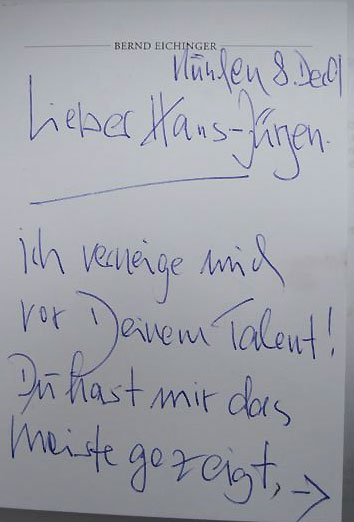 BERND EICHINGER
München 8. Dec 01
Lieber Hans-Jürgen.
ich verneige mich
vor Deinem Talent!
Du hast mir das
meiste gezeigt, →